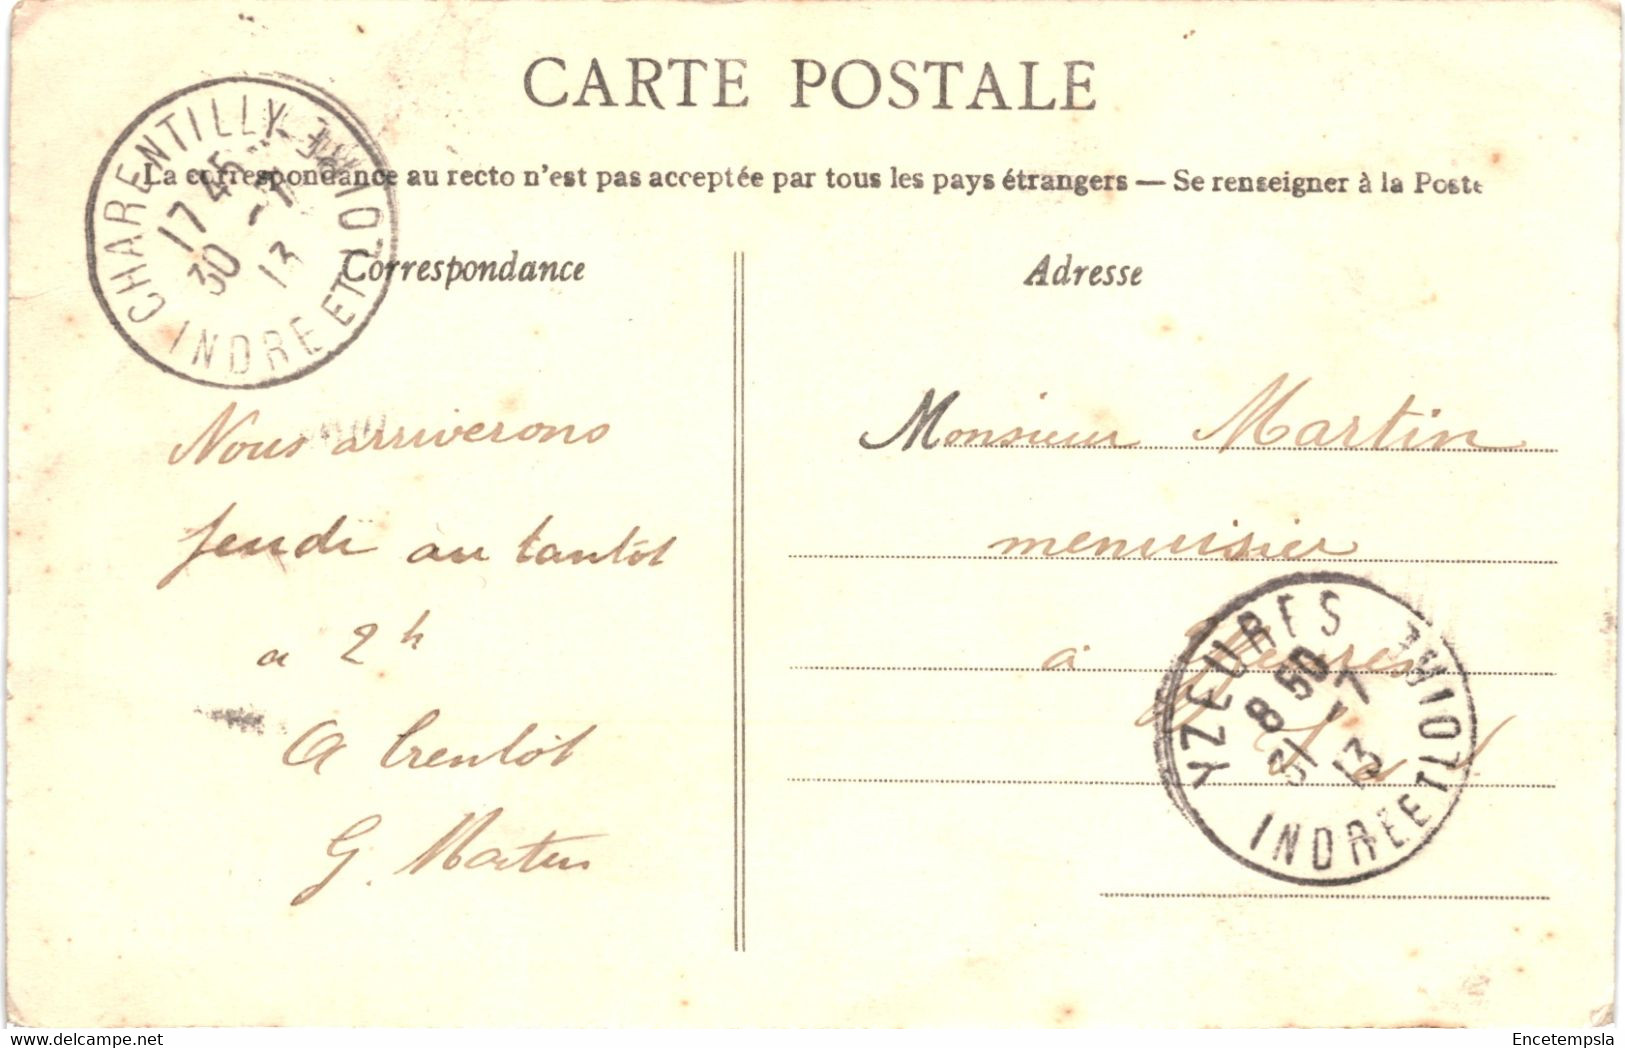 CARTE POSTALE
La correspondance au recto n'est pas acceptée par tous les pays étrangers — Se renseigner à la Poste
CHARENTILLY
17 45
30 -7
13
INDRE ET LOIRE
Correspondance
Nous arriverons
jeudi au tantôt
a 2 h
A bientôt
G. Martin
Adresse
Monsieur Martin
menuisier
à Yzeures
I et L
YZEURES
8 50
31 -7
13
INDRE ET LOIRE
Encetempsla